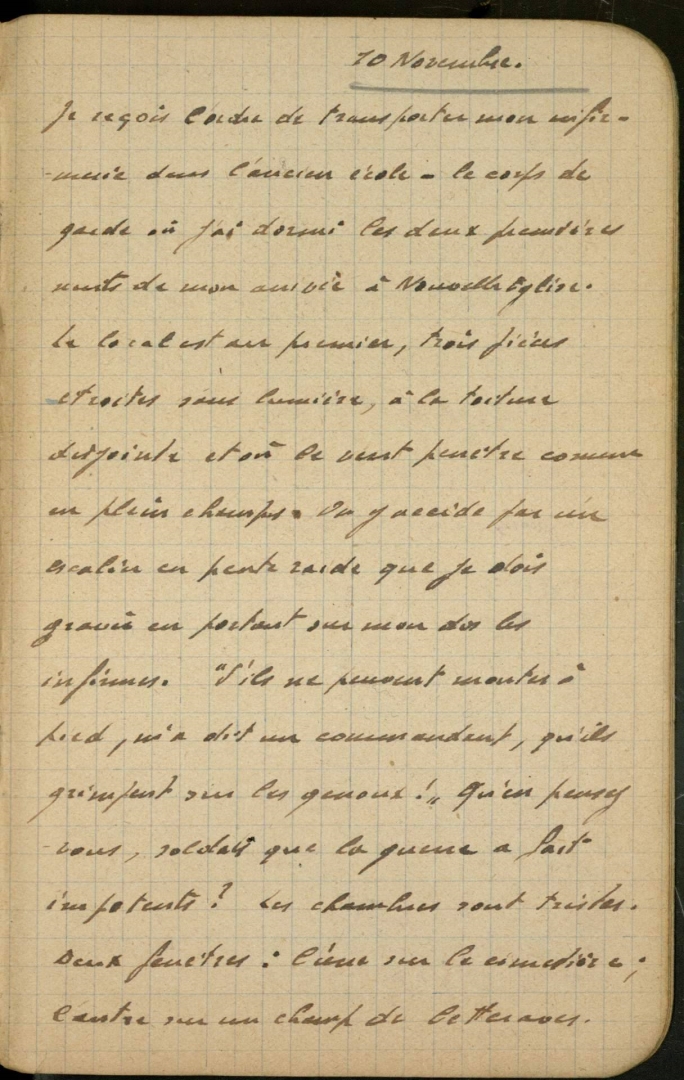 10 Novembre.
Je reçois l'ordre de transporter mon infir-
-merie dans l'ancien école - le corps de
garde où j'ai dormi les deux premières
nuits de mon arrivée à Nouvelle Eglise.
Le local est au premier, trois pièces
etroites sans lumière, à la toiture
disjointe et où le vent penètre comme
en plein champs. On y accède par un
escalier en pente raide que je dois
gravir en portant sur mon dos les
infirmes. "S'ils ne peuvent monter à
pied, m'a dit un commandant, qu'ils
grimpent sur les genoux !„ Qu'en pensez
-vous, soldats que la guerre a fait
impotents ? Les chambres sont tristes.
Deux fenêtres : l'une sur le cimetière ;
l'autre sur un champ de betteraves.